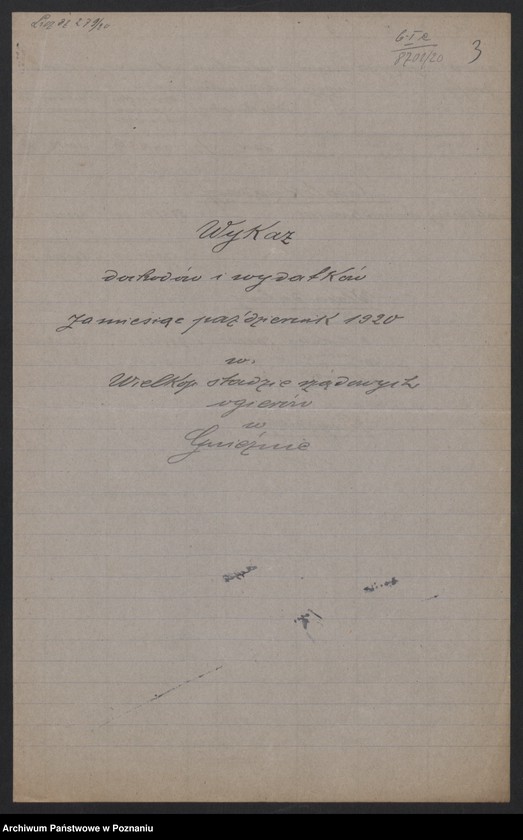 279/20
8701/20
3
Wykaz
dochodów i wydatków
za miesiąc październik 1920
w.
Wielkop. stadzie rządowych
ogierów
w
Gnieźnie
Archiwum Państwowe w Poznaniu